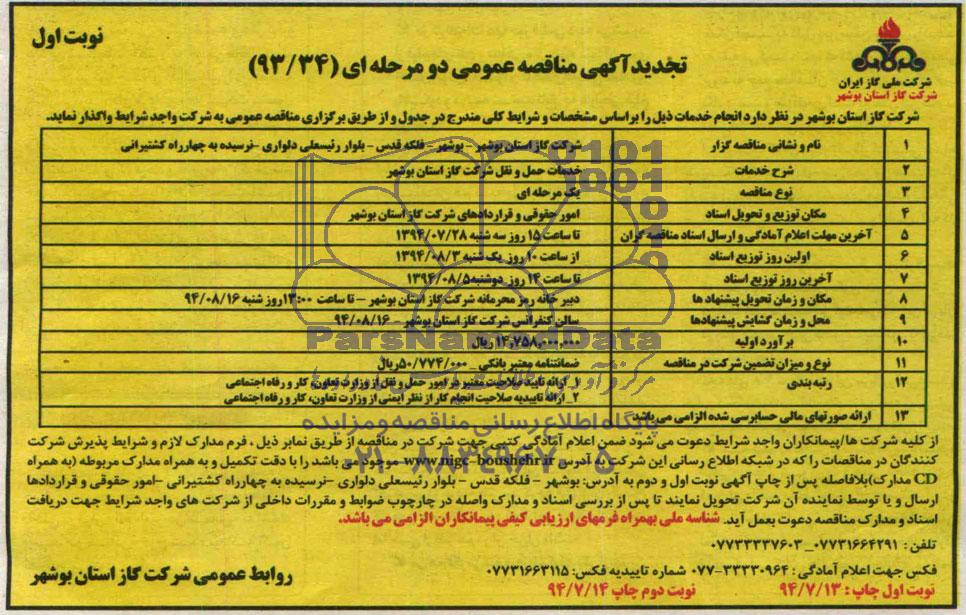 نوبت اول
تجدید آگهی مناقصه عمومی دو مرحله ای (۹۳/۳۴)
شرکت ملی گاز ایران
شرکت گاز استان بوشهر
شرکت گاز استان بوشهر در نظر دارد انجام خدمات ذیل را براساس مشخصات و شرایط کلی مندرج در جدول و از طریق برگزاری مناقصه عمومی به شرکت واجد شرایط واگذار نماید.
۱ نام و نشانی مناقصه گزار شرکت گاز استان بوشهر - بوشهر - فلکه قدس - بلوار رئیسعلی دلواری -نرسیده به چهارراه کشتیرانی
۲ شرح خدمات خدمات حمل و نقل شرکت گاز استان بوشهر
۳ نوع مناقصه یک مرحله ای
۴ مکان توزیع و تحویل اسناد امور حقوقی و قراردادهای شرکت گاز استان بوشهر
۵ آخرین مهلت اعلام آمادگی و ارسال اسناد مناقصه گران تا ساعت ۱۵ روز سه شنبه ۱۳۹۴/۰۷/۲۸
۶ اولین روز توزیع اسناد از ساعت ۱۰ روز یک شنبه ۱۳۹۴/۰۸/۳
۷ آخرین روز توزیع اسناد تا ساعت ۱۴ روز دوشنبه ۱۳۹۴/۰۸/۵
۸ مکان و زمان تحویل پیشنهاد ها دبیر خانه رمز محرمانه شرکت گاز استان بوشهر – تا ساعت ۱۳:۰۰ روز شنبه ۹۴/۰۸/۱۶
۹ محل و زمان گشایش پیشنهادها سالن کنفرانس شرکت گاز استان بوشهر – ۹۴/۰۸/۱۶
۱۰ برآورد اولیه ۱۴,۷۵۸,۰۰۰,۰۰۰ ریال
۱۱ نوع و میزان تضمین شرکت در مناقصه ضمانتنامه معتبر بانکی _ ۵۰/۷۷۴/۰۰۰ ریال
۱۲ رتبه بندی ۱_ ارائه تایید صلاحیت معتبر در امور حمل و نقل از وزارت تعاون، کار و رفاه اجتماعی
۲_ ارائه تاییدیه صلاحیت انجام کار از نظر ایمنی از وزارت تعاون، کار و رفاه اجتماعی
۱۳ ارائه صورتهای مالی حسابرسی شده الزامی می باشد
از کلیه شرکت ها/پیمانکاران واجد شرایط دعوت می شود ضمن اعلام آمادگی کتبی جهت شرکت در مناقصه از طریق نمابر ذیل ، فرم مدارک لازم و شرایط پذیرش شرکت
کنندگان در مناقصات را که در شبکه اطلاع رسانی این شرکت به آدرس www.nigc-boushehr.ir موجود می باشد را با دقت تکمیل و به همراه مدارک مربوطه (به همراه
CD مدارک)بلافاصله پس از چاپ آگهی نوبت اول و دوم به آدرس: بوشهر - فلکه قدس - بلوار رئیسعلی دلواری -نرسیده به چهارراه کشتیرانی -امور حقوقی و قراردادها
ارسال و یا توسط نماینده آن شرکت تحویل نمایند تا پس از بررسی اسناد و مدارک واصله در چارچوب ضوابط و مقررات داخلی از شرکت های واجد شرایط جهت دریافت
اسناد و مدارک مناقصه دعوت بعمل آید. شناسه ملی بهمراه فرمهای ارزیابی کیفی پیمانکاران الزامی می باشد.
تلفن : ۰۷۷۳۱۶۶۴۲۹۱ _ ۰۷۷۳۳۳۳۷۶۰۳
فکس جهت اعلام آمادگی : ۳۳۳۳۰۹۶۴-۰۷۷ شماره تاییدیه فکس: ۰۷۷۳۱۶۶۳۱۱۵
نوبت اول چاپ : ۹۴/۷/۱۳ نوبت دوم چاپ ۹۴/۷/۱۴
روابط عمومی شرکت گاز استان بوشهر
ParsNamadData
پایگاه اطلاع رسانی مناقصه و مزایده
۰۲۱-۸۸۳۴۹۶۷۰-۵